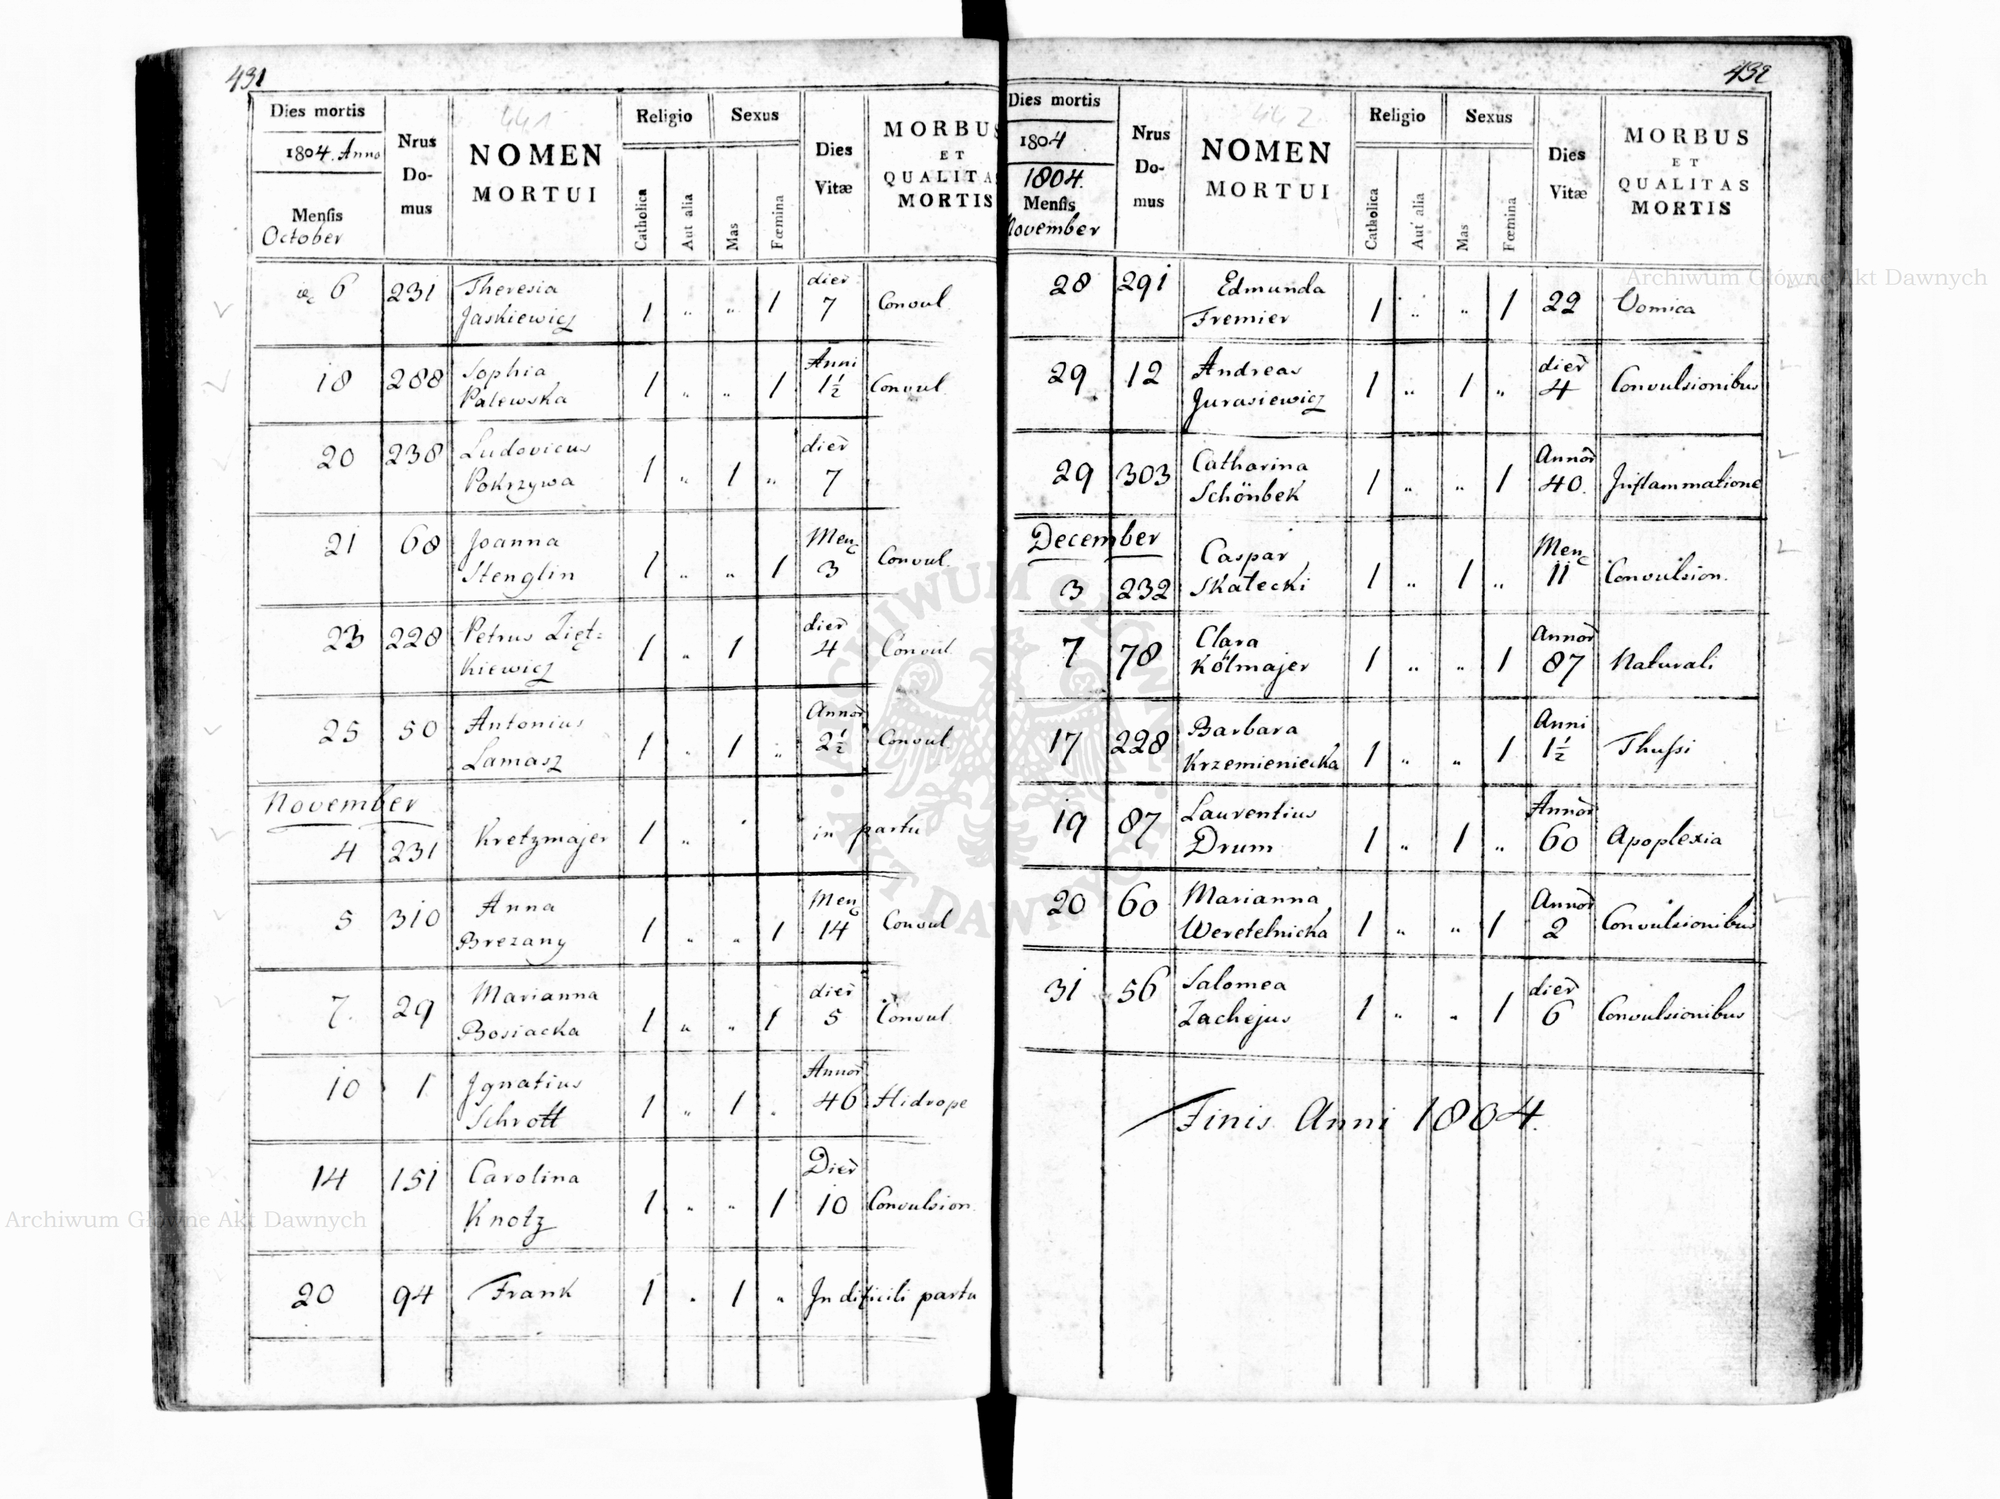 431
Dies mortis
1804. Anno
Mensis
October
Nrus
Do-
mus
441
NOMEN
MORTUI
Religio
Catholica
Aut alia
Sexus
Mas
Fœmina
Dies
Vitæ
MORBUS
ET
QUALITA
MORTIS
6 231 Theresia Jaskiewicz 1 „ „ 1 dier 7 Convul
18 288 Sophia Palewska 1 „ „ 1 Anni 1½ Convul.
20 238 Ludovicus Pokrzywa 1 „ 1 „ dier 7
21 68 Joanna Stenglin 1 „ „ 1 Men 3 Convul.
23 228 Petrus Zięt= kiewicz 1 „ 1 dier 4 Convul
25 50 Antonius Lamasz 1 „ 1 „ Annor 2½ Convul
November
4 231 Kretzmajer 1 „ in partu
5 310 Anna Brezany 1 „ „ 1 Men 14 Convul
7. 29 Marianna Bosiacka 1 „ „ 1 dier 5 Convul
10 1 Jgnatius Schrott 1 „ 1 „ Annor 46 Hidrope
14 151 Carolina Knotz 1 „ „ 1 Dier 10 Convulsion.
20 94 Frank 1 „ 1 „ Jn dificili partu
432
Dies mortis
1804
1804.
Mensis
November
Nrus
Do-
mus
442
NOMEN
MORTUI
Religio
Catholica
Aut alia
Sexus
Mas
Fœmina
Dies
Vitæ
MORBUS
ET
QUALITAS
MORTIS
28 291 Edmunda Fremier 1 „ „ 1 22 Vomica
29 12 Andreas Jurasiewicz 1 „ 1 „ dier 4 Convulsionibus
29 303 Catharina Schönbek 1 „ „ 1 Annor 40. Jnflammatione
December
3 232 Caspar Skatecki 1 „ 1 „ Men 11 Convulsion.
7 78 Clara Kölmajer 1 „ „ 1 Annor 87 Naturali
17 228 Barbara Krzemieniecka 1 „ „ 1 Anni 1½ Thussi
19 87 Laurentius Drum 1 „ 1 „ Annor 60 Apoplexia
20 60 Marianna Weretelnicka 1 „ „ 1 Annor 2 Convulsionibus
31 56 Salomea Zachejus 1 „ „ 1 dier 6 Convulsionibus
Finis Anni 1804.
Archiwum Główne Akt Dawnych
Archiwum Główne Akt Dawnych
ARCHIWUM GŁÓWNE
AKT DAWNYCH